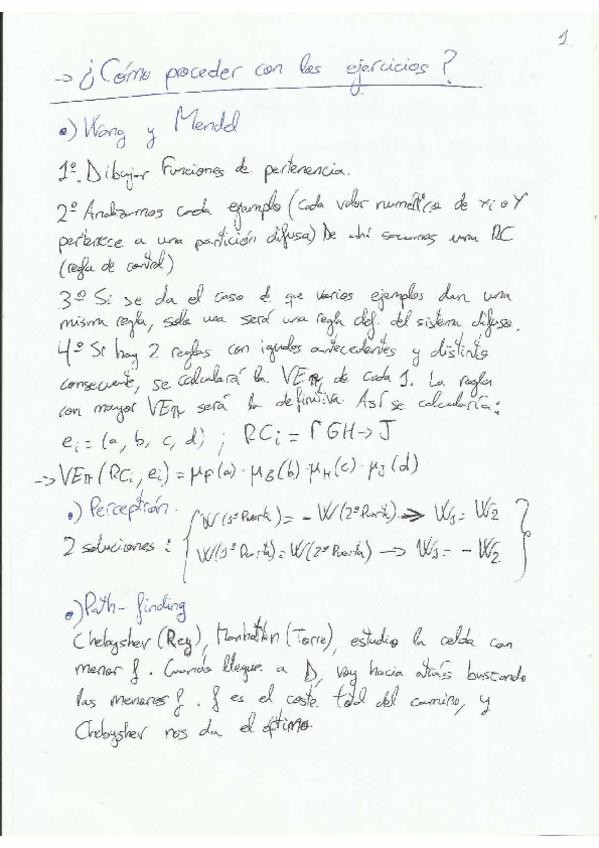 1
→ ¿Cómo proceder con los ejercicios?
•) Wang y Mendel
1º. Dibujar Funciones de pertenencia.
2º Analizamos cada ejemplo (cada valor numérico de xi o Y
pertenece a una partición difusa) De ahí sacamos una RC
(regla de control)
3º Si se da el caso de que varios ejemplos dan una
misma regla, solo una será una regla def. del sistema difuso.
4º Si hay 2 reglas con iguales antecedentes y distinto
consecuente, se calculará la VEπ de cada 1. La regla
con mayor VEπ será la definitiva. Así se calcularía:
ei = (a, b, c, d) ; RCi = ΓGH → J
→ VEπ(RCi, ei) = μΓ(a) · μG(b) · μH(c) · μJ(d)
•) Perceptrón.
2 soluciones : { W(1ª Puerta) = - W(2ª Puerta) → W1 = W2
W(1ª Puerta) = W(2ª Puerta) → W1 = - W2 }
•) Path-finding
Chebyshev (Rey), Manhattan (Torre), estudio la celda con
menor f. Cuando llegue a D, voy hacia atrás buscando
las menores f. f es el coste total del camino, y
Chebyshev nos da el óptimo.